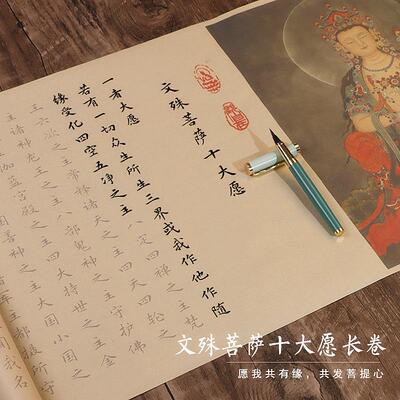 文殊菩萨十大愿
一者大愿
若有一切众生所生三界或我作他作随
缘受化四空五净之主八定四禅之主梵
王六欲之主帝释诸天之主四天四轮之
主诸神龙王之主八部鬼神之主守护佛
伽蓝宫殿之主四大持世之主金
国善神之主大国小国之
之主都摄所守
文殊菩萨十大愿长卷
愿我共有缘，共发菩提心